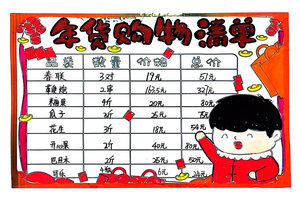 年货购物清单
品类 数量 价格 总价
春联 3对 19元 57元
鞭炮 2串 163.5元 327元
糖果 4斤 20元 80元
瓜子 2斤 25元
花生 3斤 18元 54元
开心果 2斤 40元 80元
巴旦木 2斤 25元
可乐 6元